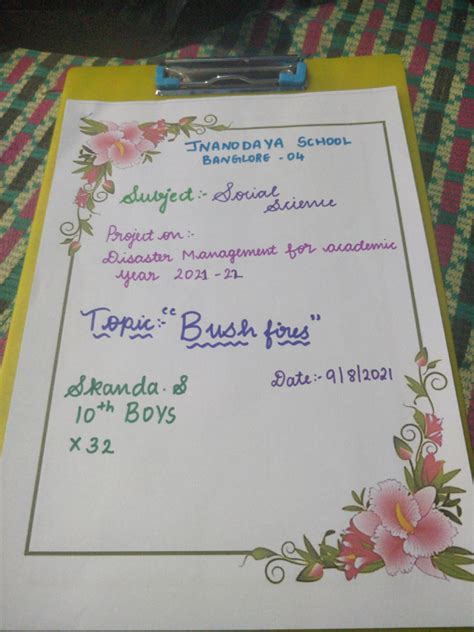 JNANODAYA SCHOOL
BANGLORE - 04
Subject:- Social
Science
Project on:-
Disaster Management for academic
year 2021-22
Topic:- "Bush fires"
Skanda. S
Date:- 9/8/2021
10th BOYS
X 32